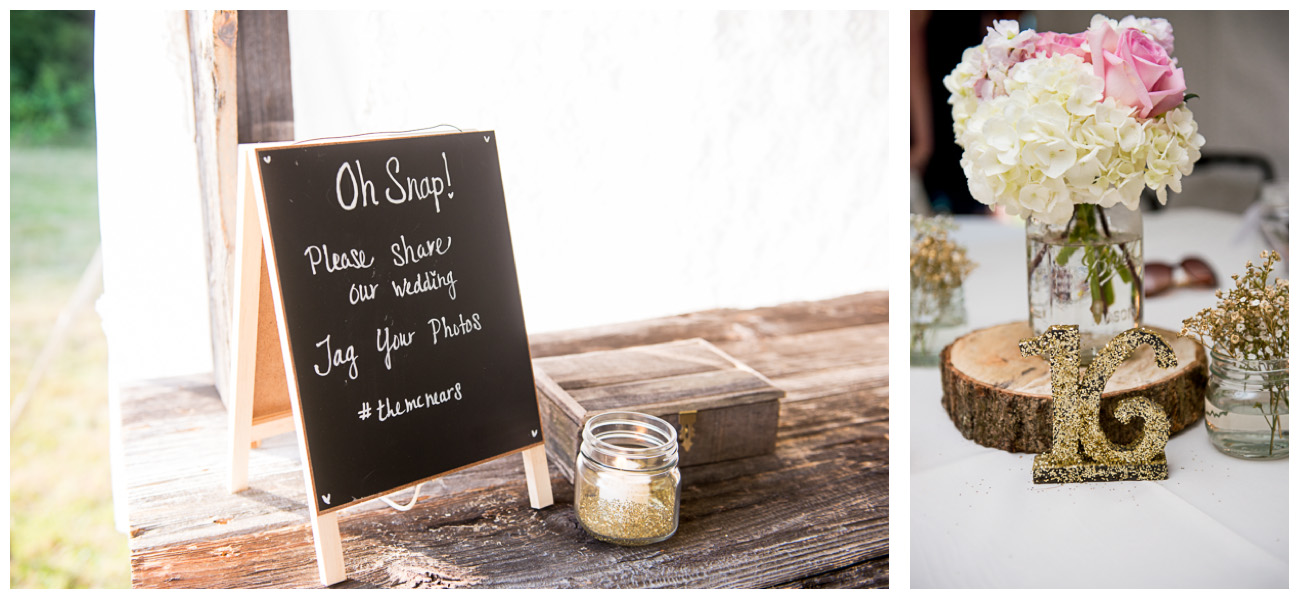 Oh Snap!
Please share
our wedding
Tag Your Photos
#themcnears
16